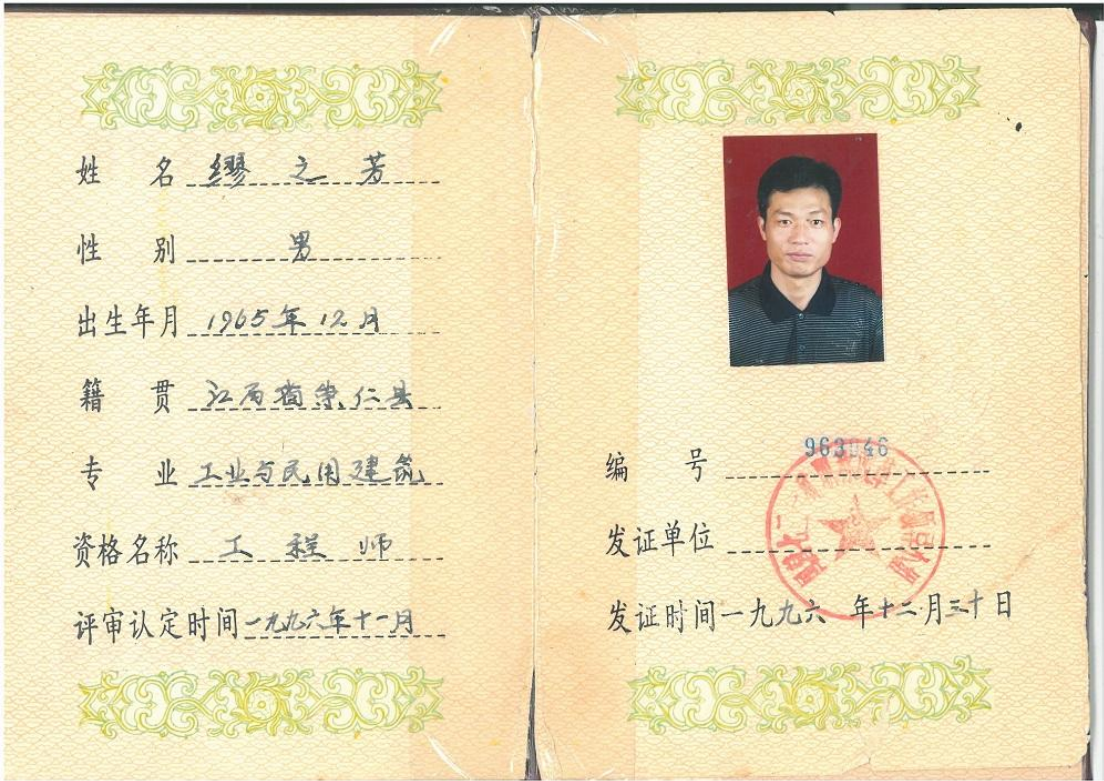 姓 名 缪之芳
性 别 男
出生年月 1965年12月
籍 贯 江西省崇仁县
专 业 工业与民用建筑
资格名称 工程师
评审认定时间一九九六年十一月
编 号 963046
发证单位
发证时间一九九六 年十二月三十日